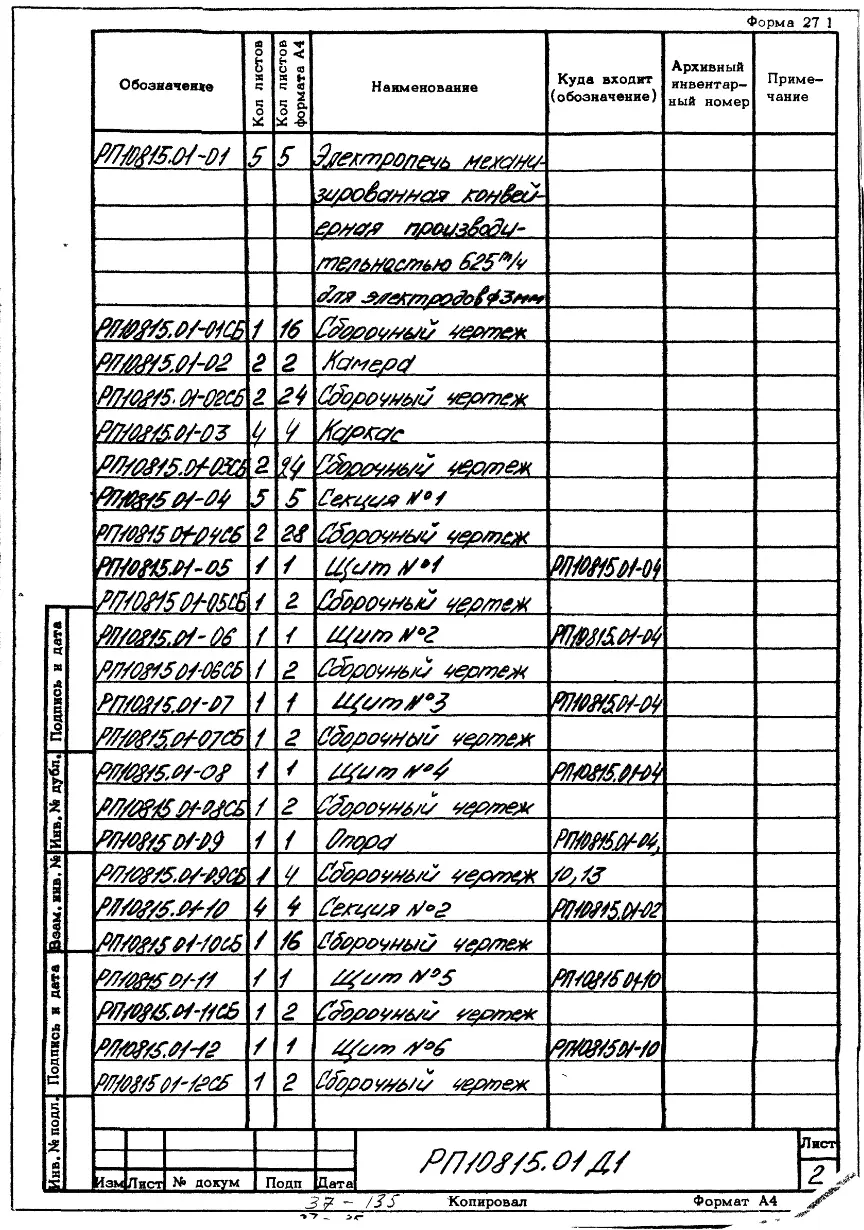 Форма 27 1
Обозначение Кол листов Кол листов формата А4 Наименование Куда входит (обозначение) Архивный инвентарный номер Примечание
РП10815.01-01 5 5 Электропечь механи-
зированная конвей-
ерная производи-
тельностью 625 т/ч
для электродов ф3мм
РП10815.01-01СБ 1 16 Сборочный чертеж
РП10815.01-02 2 2 Камера
РП10815.01-02СБ 2 24 Сборочный чертеж
РП10815.01-03 4 4 Каркас
РП10815.01-03СБ 2 24 Сборочный чертеж
РП10815 01-04 5 5 Секция №1
РП10815 01-04СБ 2 28 Сборочный чертеж
РП10815.01-05 1 1 Щит №1 РП10815 01-04
РП10815 01-05СБ 1 2 Сборочный чертеж
РП10815.01-06 1 1 Щит №2 РП10815.01-04
РП10815 01-06СБ 1 2 Сборочный чертеж
РП10815.01-07 1 1 Щит №3 РП10815.01-04
РП10815.01-07СБ 1 2 Сборочный чертеж
РП10815.01-08 1 1 Щит №4 РП10815.01-04
РП10815 01-08СБ 1 2 Сборочный чертеж
РП10815 01-09 1 1 Опора РП10815.01-04,
РП10815.01-09СБ 1 4 Сборочный чертеж 10,13
РП10815.01-10 4 4 Секция №2 РП10815.01-02
РП10815 01-10СБ 1 16 Сборочный чертеж
РП10815 01-11 1 1 Щит №5 РП10815 01-10
РП10815.01-11СБ 1 2 Сборочный чертеж
РП10815.01-12 1 1 Щит №6 РП10815 01-10
РП10815 01-12СБ 1 2 Сборочный чертеж
Подпись и дата
Инв. № дубл.
Взам. инв. №
Подпись и дата
Инв. № подл.
РП10815.01 Д1
Лист
2
Изм Лист № докум Подп Дата
37 - 135 Копировал Формат А4